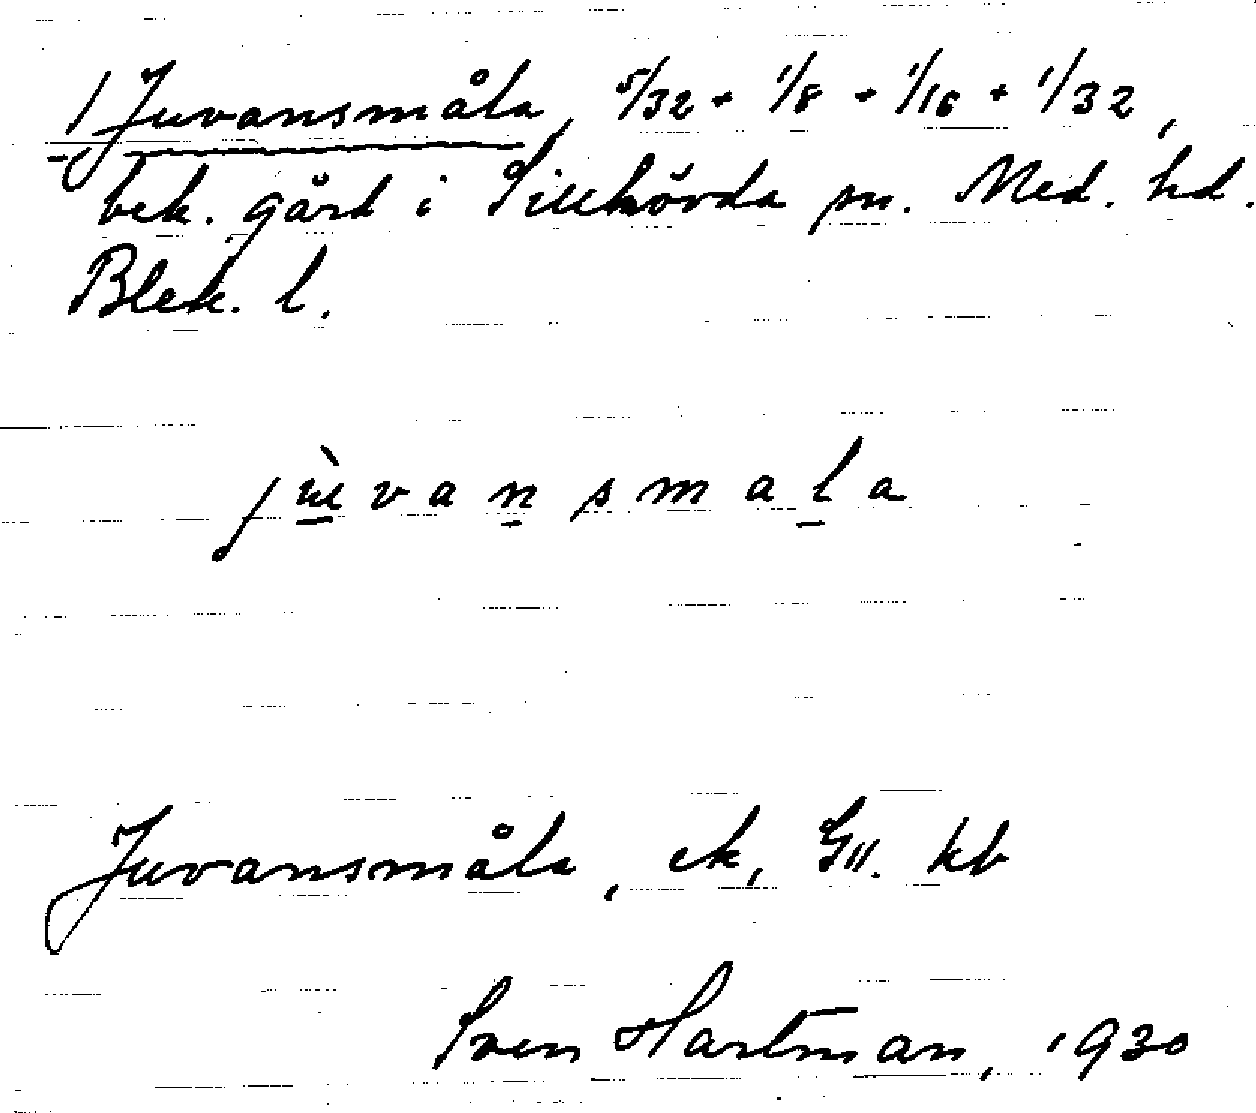 1 Juvansmåla, 5/32 + 1/8 + 1/16 + 1/32,
bek. gård i Sillhövda sn. Med. hd.
Blek. l.
jùvansmala
Juvansmåla, ek, GII. kb
Sven Hartman, 1930